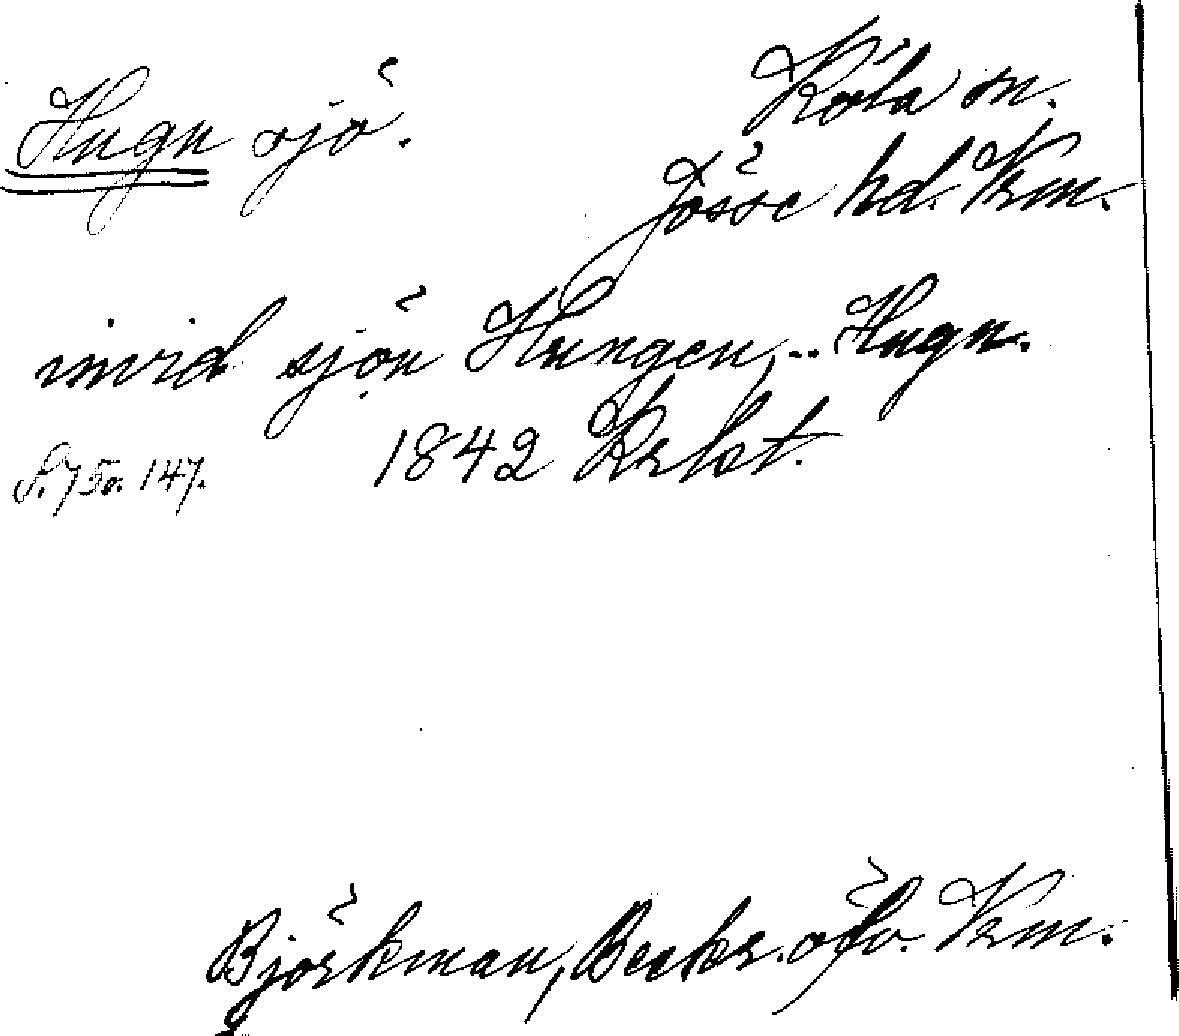 Hugn sjö.
Köla sn.
Jösse hd. Vrm.
invid sjön Hungen, .. Hugn.
1842
S. 75 o. 147.
Björkman, Beskr. öfv. Vrm.